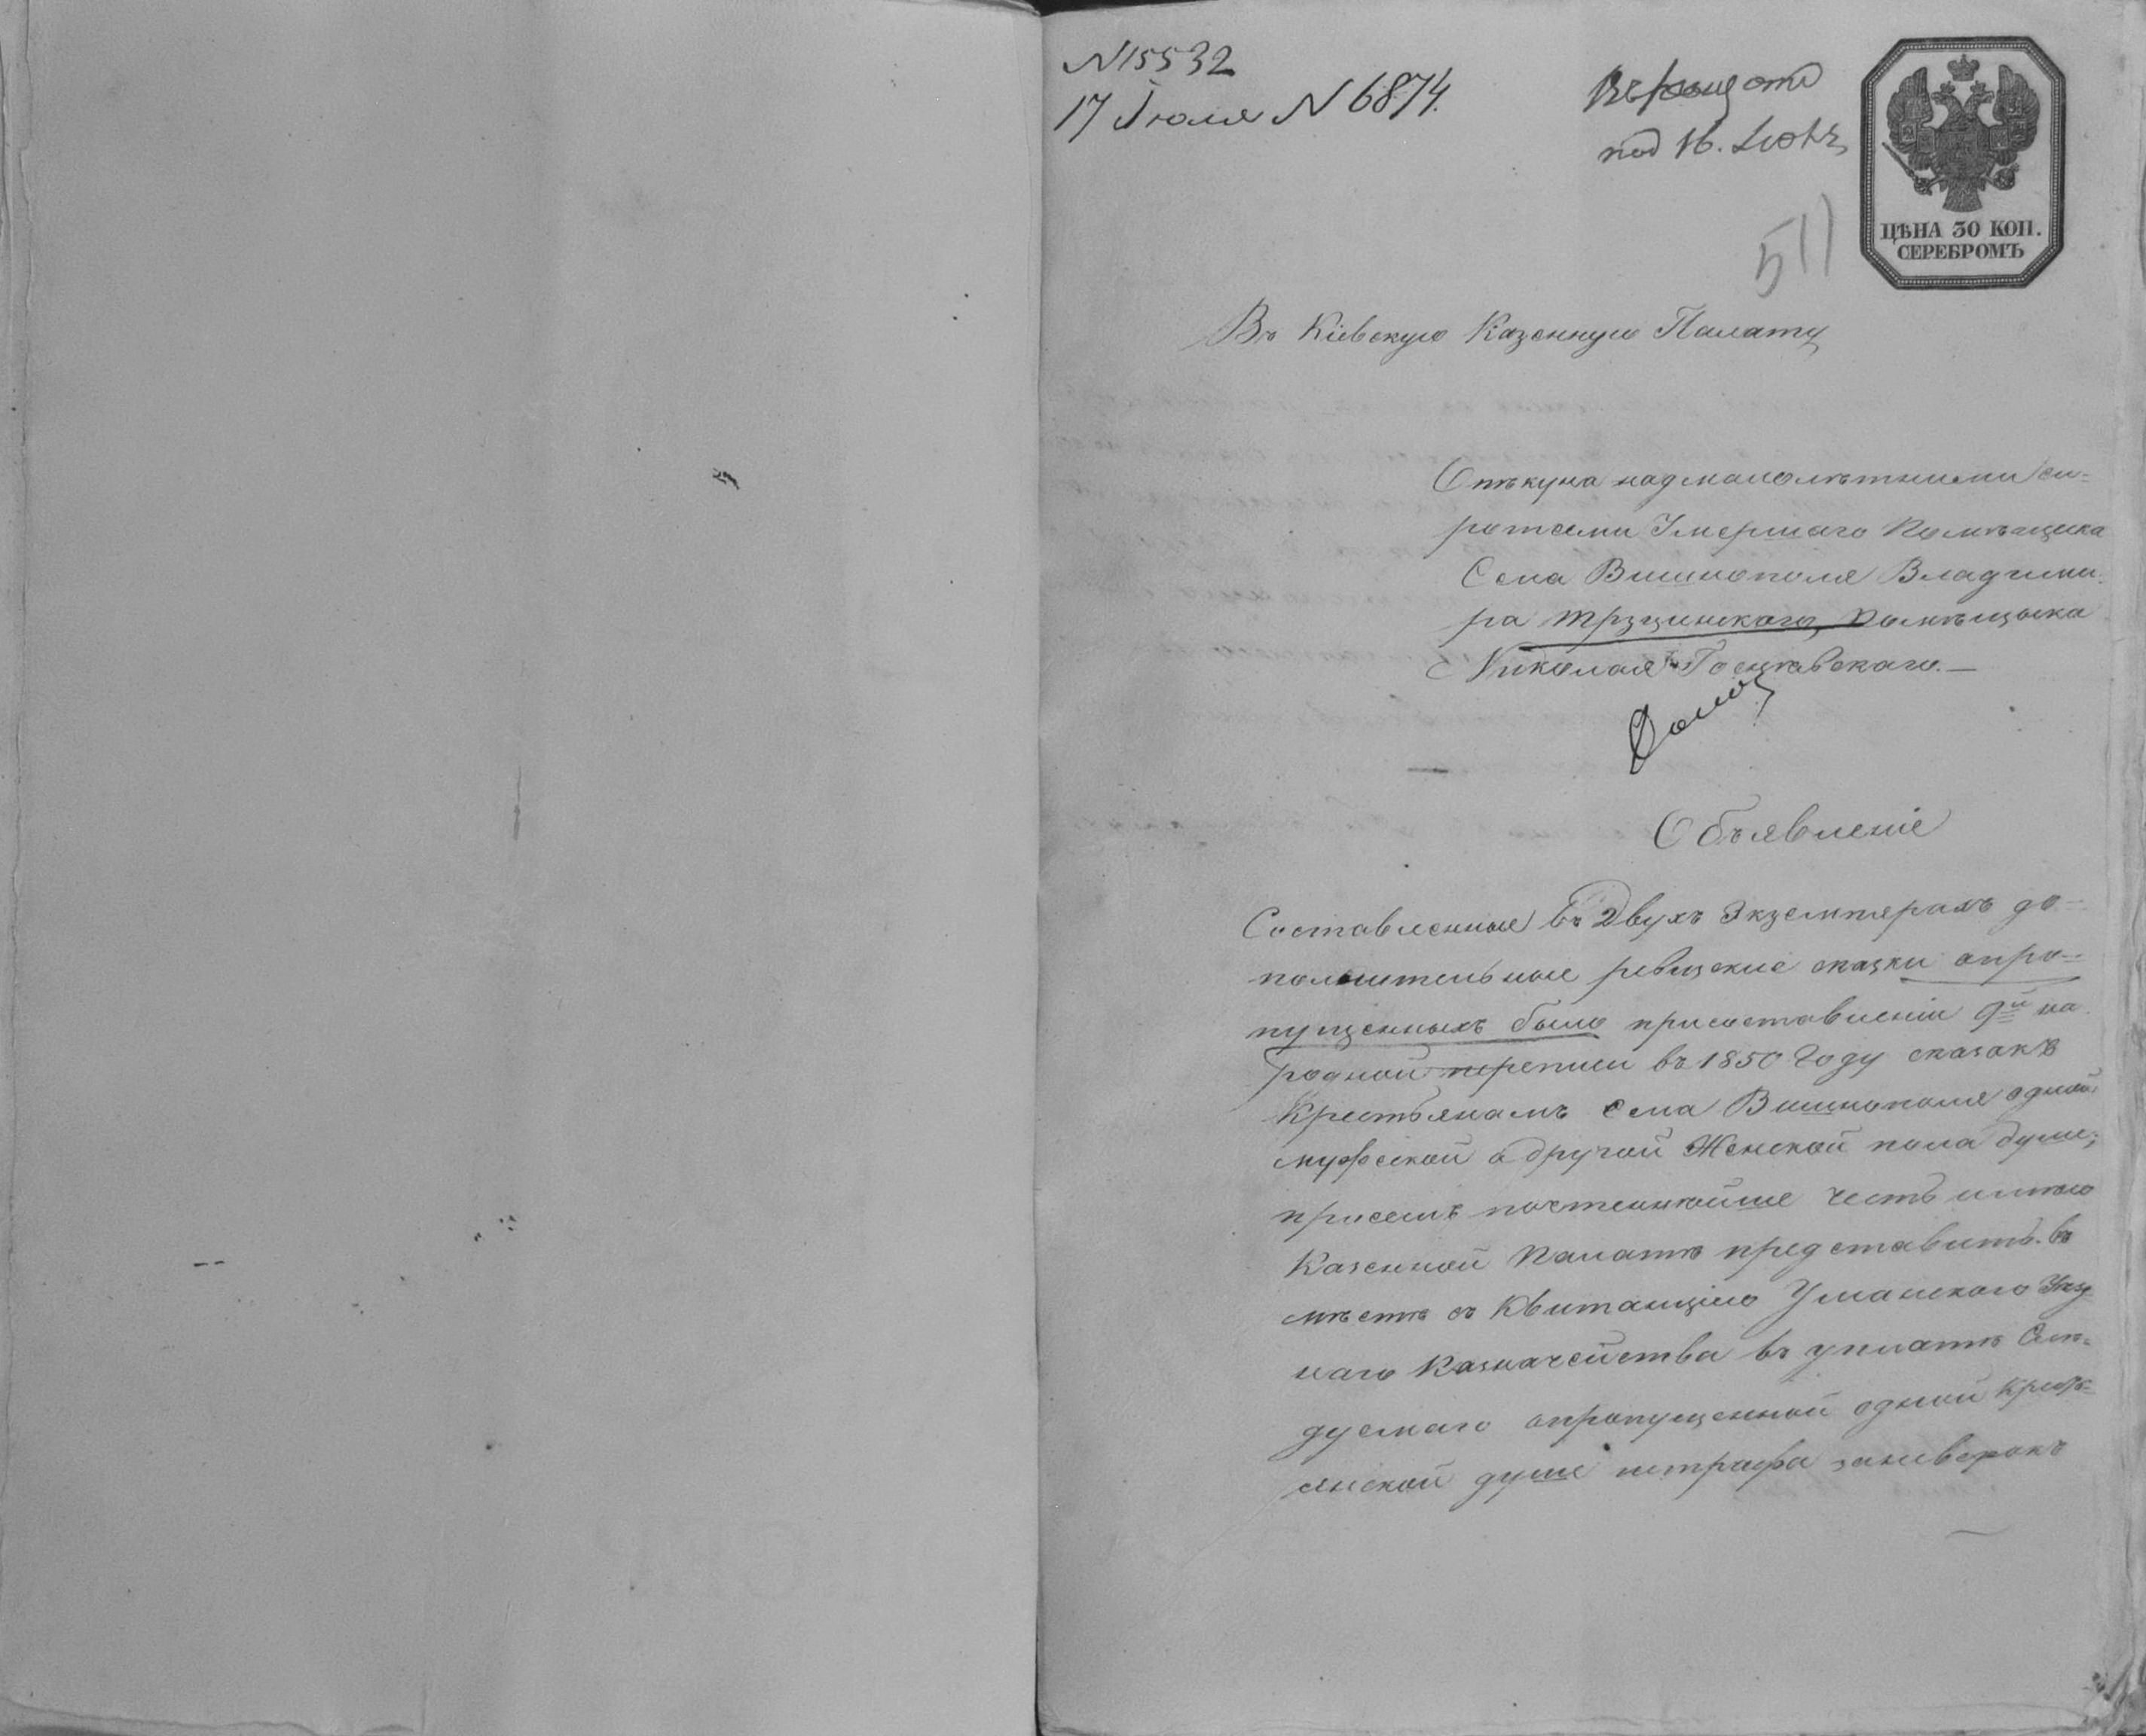 N 15532
17 Іюля N 6874.
под 16. Іюля
ЦѢНА 30 КОП.
СЕРЕБРОМЪ
51
Въ Кіевскую Казенную Палату
Опѣкуна надмалолѣтными си-
ротами Умершаго Помѣщика
Села Вишнополя Владими-
ра Трзцинскаго, Помѣщыка
Николая
Объявленіе
Составленные въ Двухъ Экземплярахъ до-
полнительные ревизские сказки опро-
пущенныхъ было присоставленіи 9й на
родной переписи въ 1850 Году сказакъ
Крестьянамъ Села Вишнополя одной
мужеской а другой Женской пола души;
присемъ почтеннѣйше честь имѣю
Казенной Палатѣ представить въ
мѣстѣ съ Квитанціею Уманскаго Уѣзд
наго Казначейства въ уплатѣ Слѣ-
дуемаго опропущенной одной крест-
янской душе штрафа